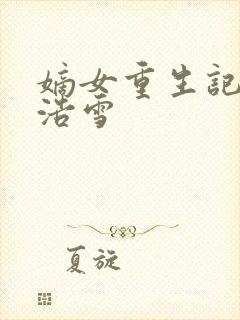 嫡女重生記
浩雪
夏旋